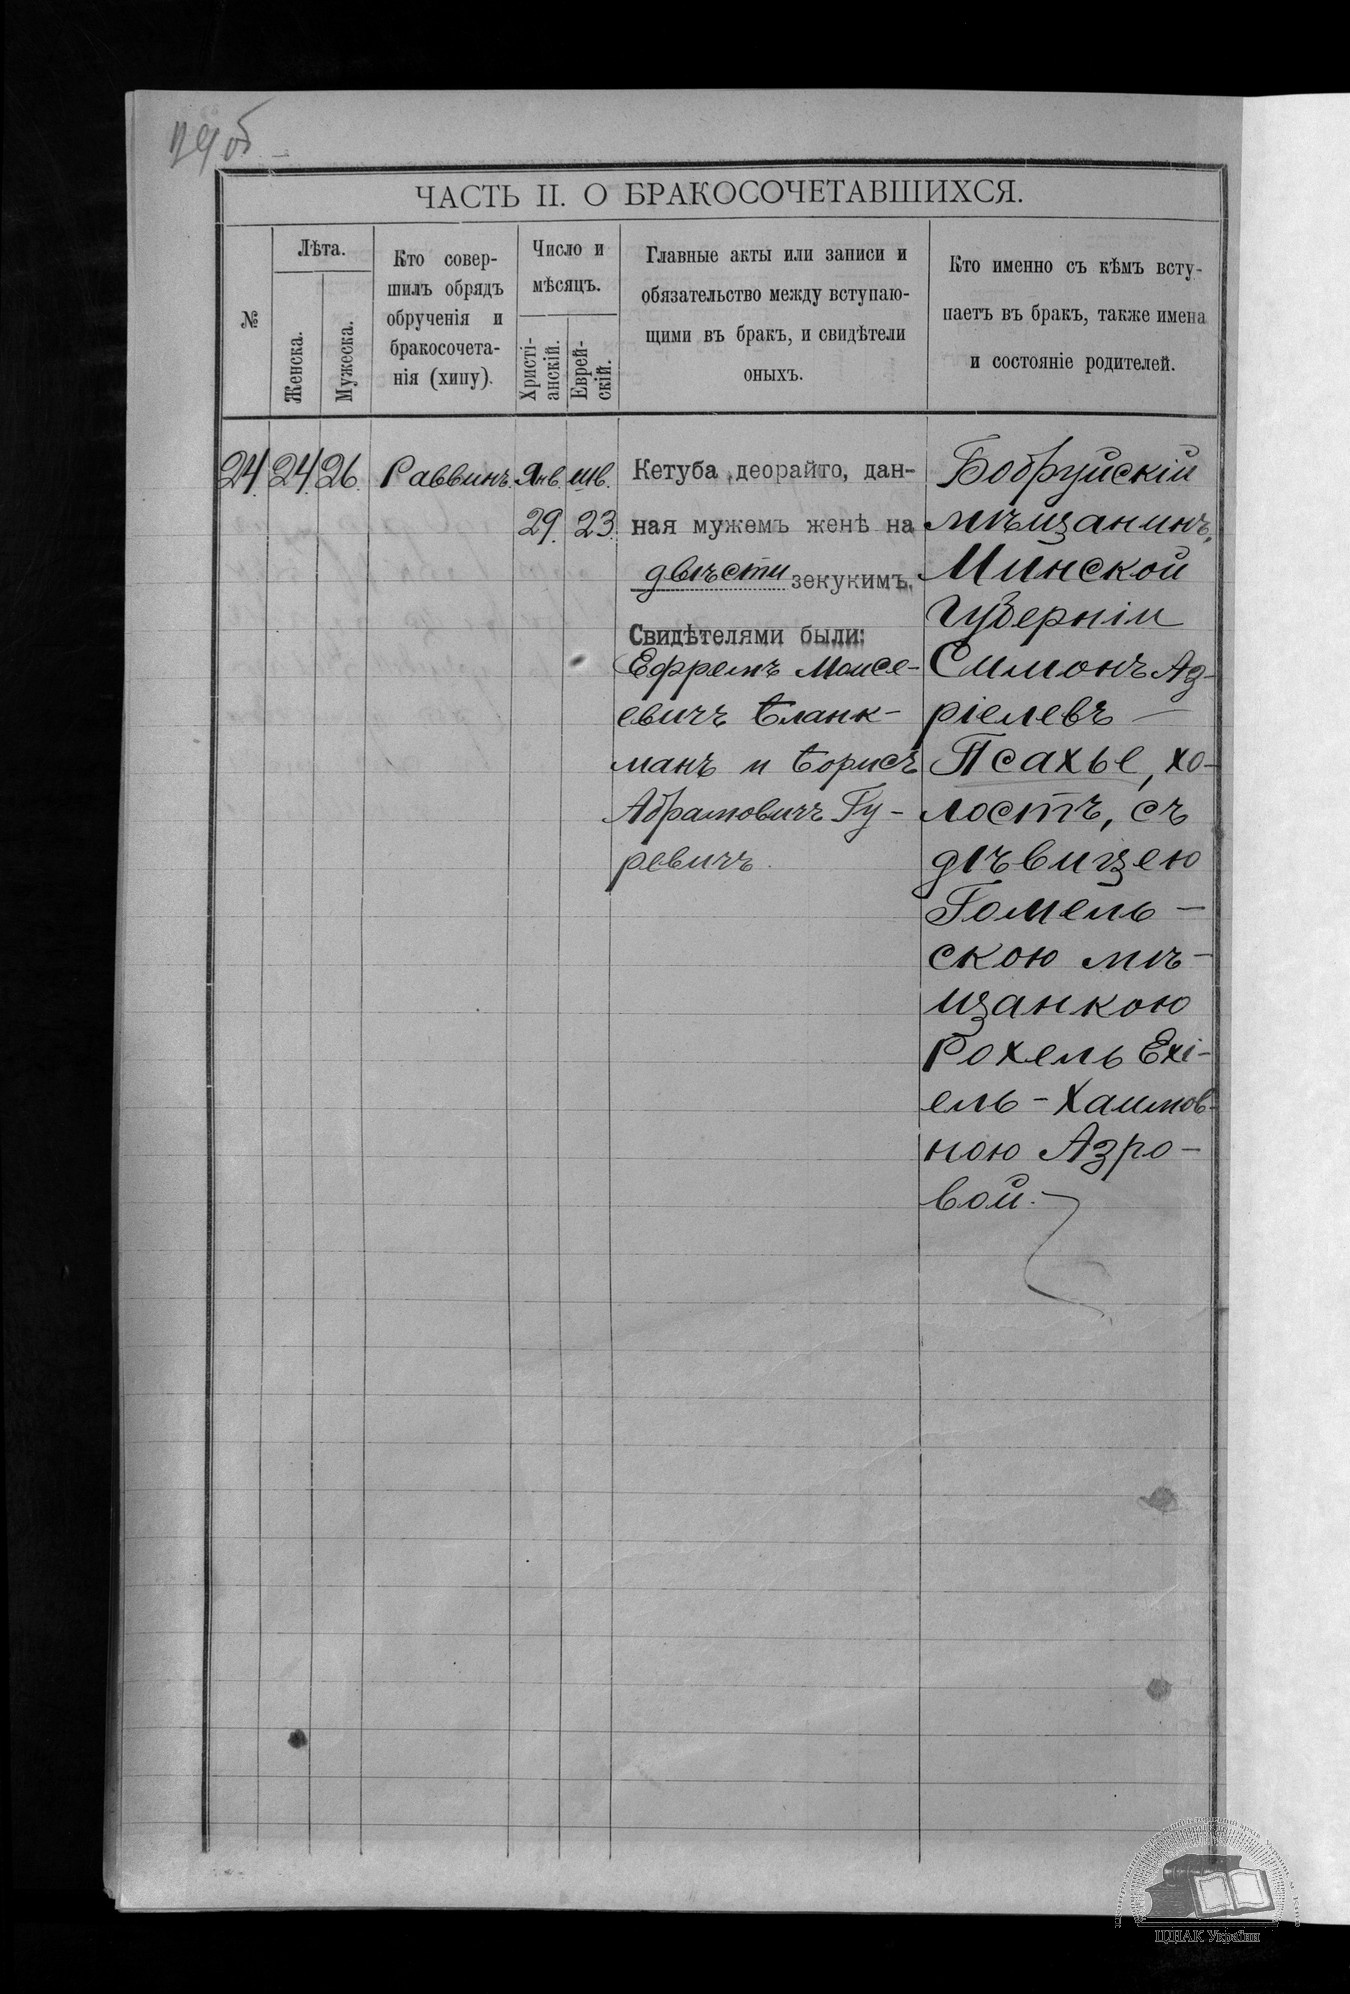 29об
ЧАСТЬ II. О БРАКОСОЧЕТАВШИХСЯ.
№
Лѣта.
Женска.
Мужеска.
Кто совер-
шилъ обрядъ
обрученія и
бракосочета-
нія (хипу).
Число и
мѣсяцъ.
Христі-
анскій.
Еврей-
скій.
Главные акты или записи и
обязательство между вступаю-
щими въ бракъ, и свидѣтели
оныхъ.
Кто именно съ кѣмъ всту-
паетъ въ бракъ, также имена
и состояніе родителей.
24.
24.
26.
Раввинъ.
Янв.
29.
шв.
23.
Кетуба деорайто, дан-
ная мужемъ женѣ на
двѣсти зекукимъ.
Свидѣтелями были:
Ефремъ Моисе-
евичъ Бланк-
манъ и Борисъ
Абрамовичъ Гу-
ревичъ.
Бобруйскій
мѣщанинъ,
Минской
губерніи
Симонъ Аз-
ріелевъ —
Псахье, хо-
лостъ, съ
дѣвицею
Гомель-
скою мѣ-
щанкою
Рохель Ехі-
ель-Хаимов-
ною Азро-
вой.
ЦДІАК України